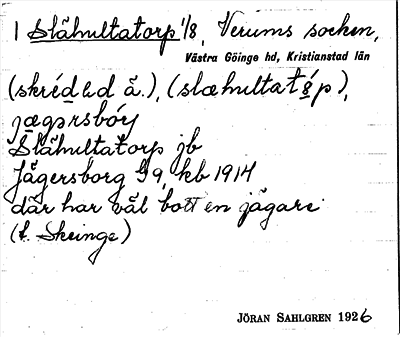 1 Slähultatorp 1/8, Verums socken,
Västra Göinge hd, Kristianstad län
(skréd ed å.), (slæhultatǫ́p),
jægərsbórj
Slähultatorp jb
Jägersborg 9, kb 1914
där har väl bott en jägare
(t. Skeinge)
JÖRAN SAHLGREN 1926